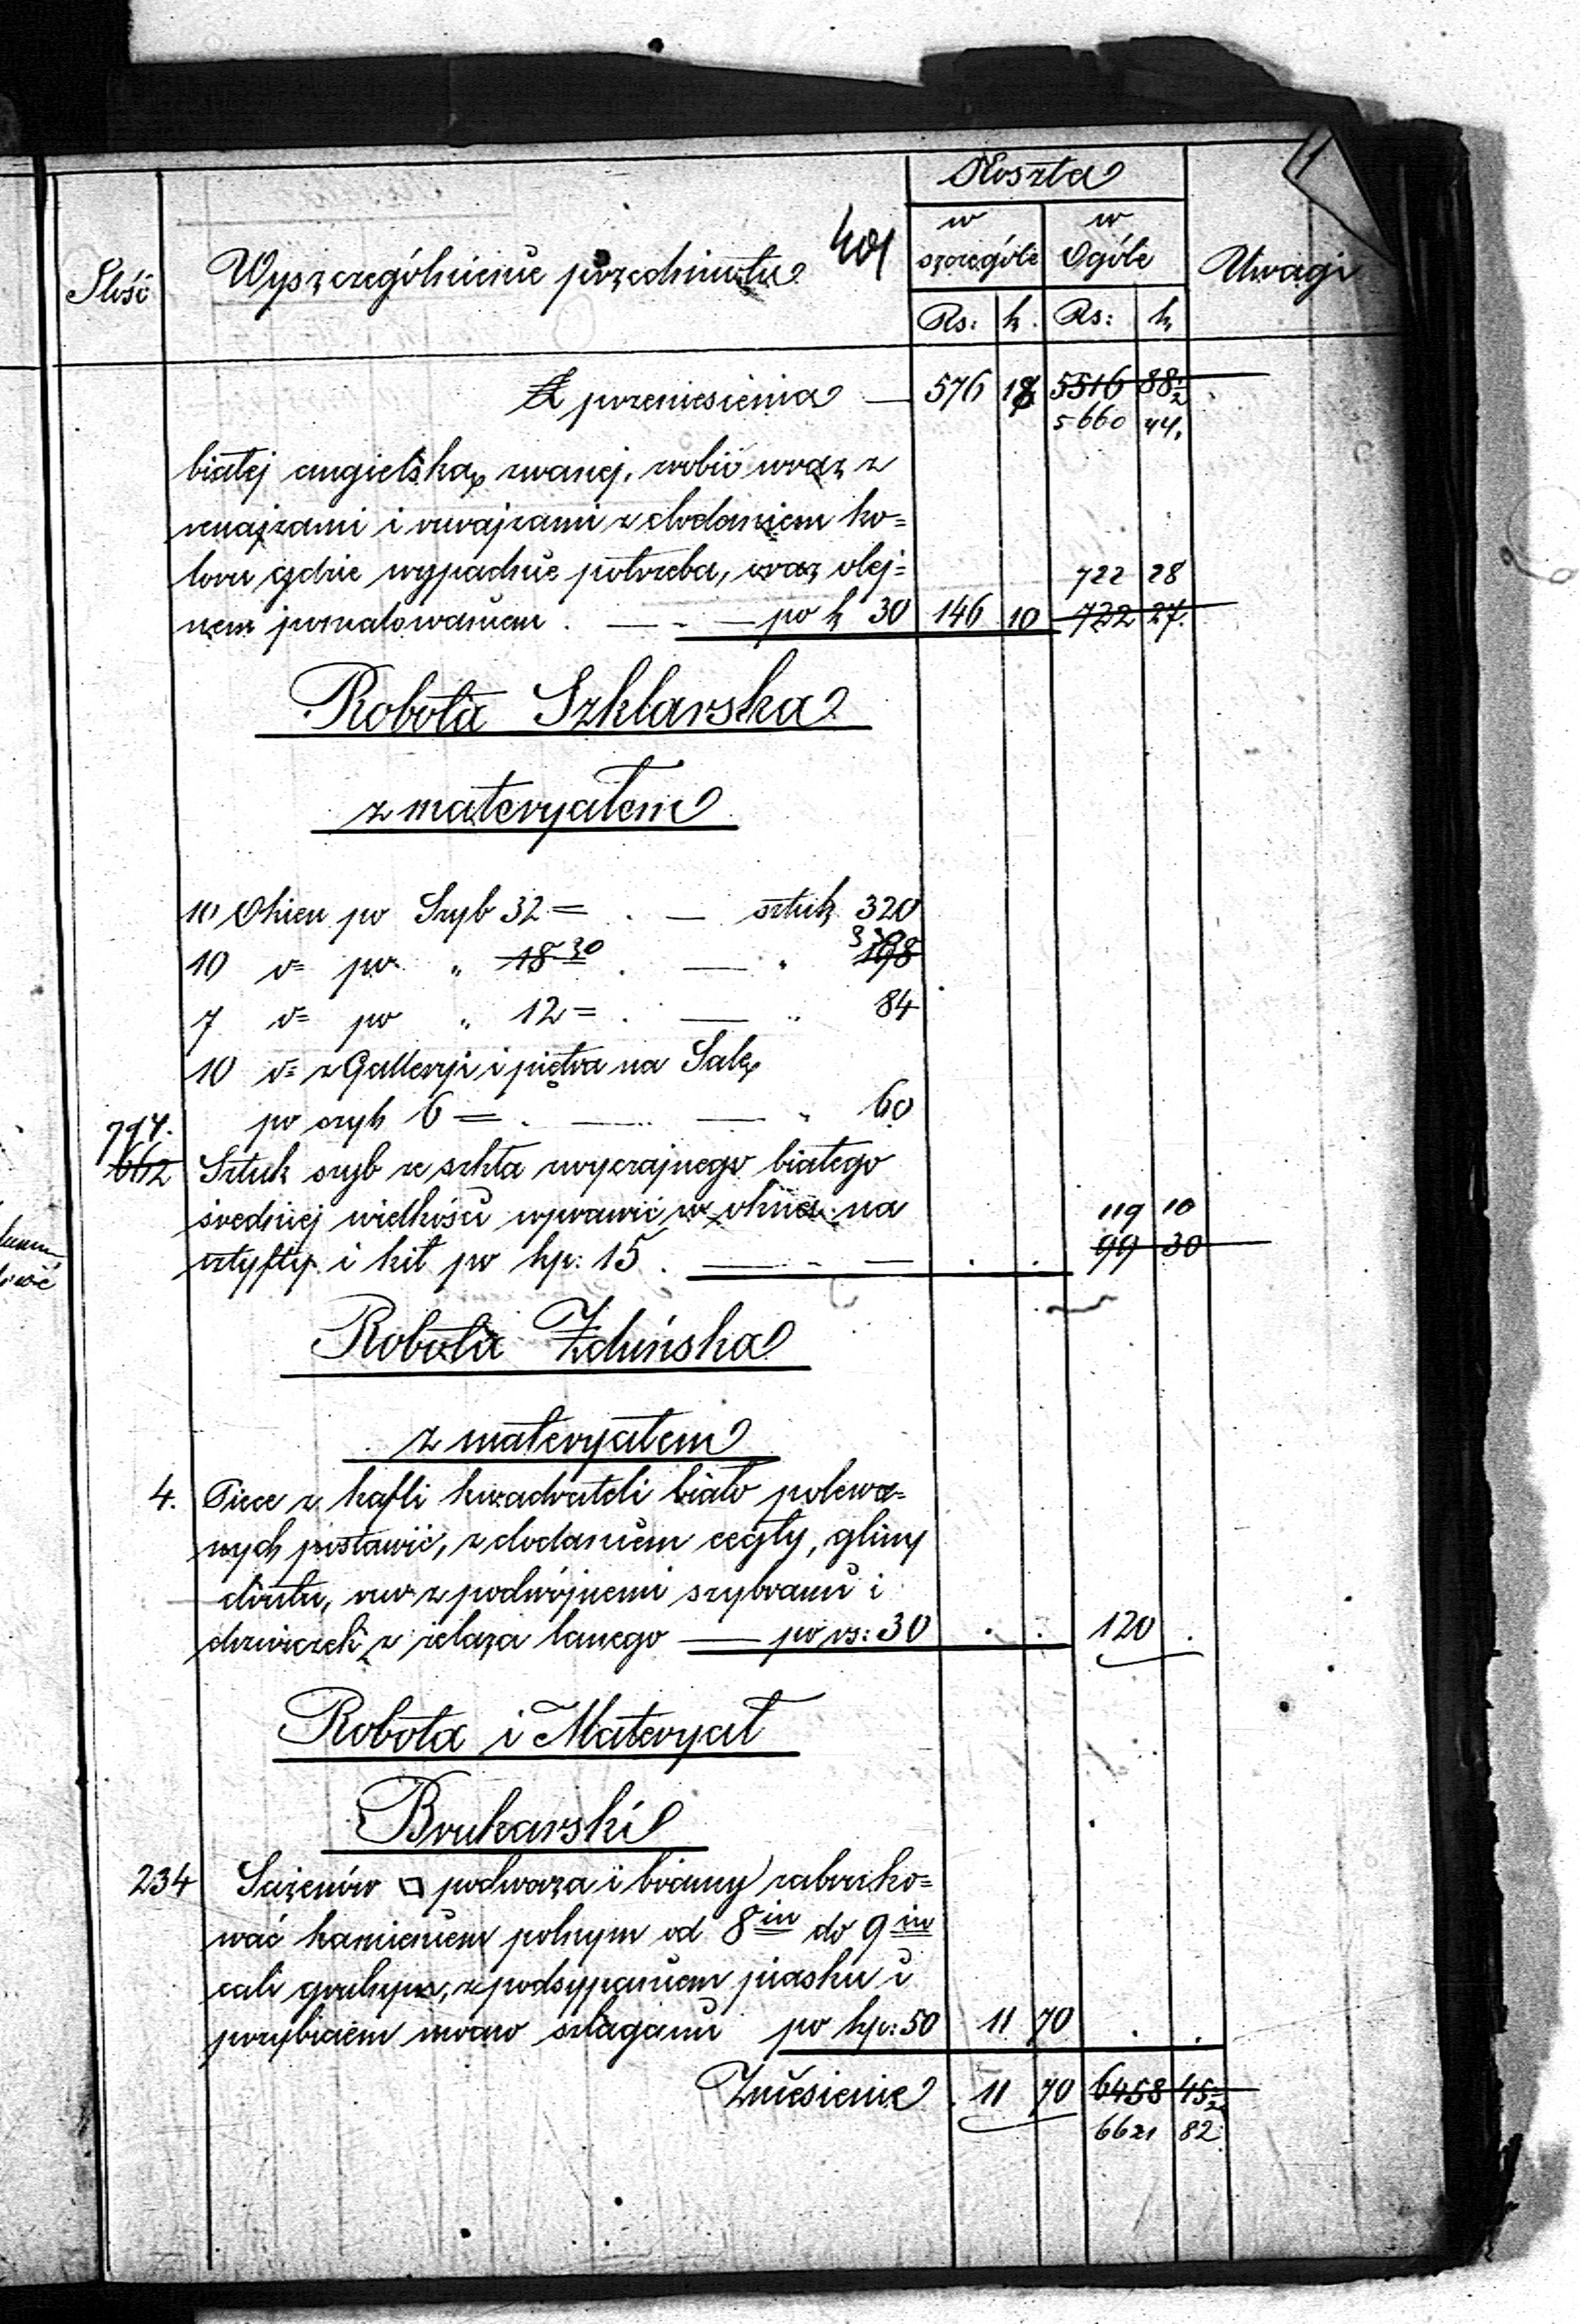 Ilość
Wyszczególnienie przedmiotu
401
Koszta
w szczególe
w Ogóle
Uwagi
Rs: k. Rs: k
Z przeniesienia — 576 18 5516 88½
5660 44.
białej angielską zwanej, zrobić wraz z
i z dodaniem ko=
loru gdzie wypadnie potrzeba, wraz olej=
722 28
nem pomalowaniem . — - — po k 30 146 10 722 27.
Robota Szklarska
z materyałem
10 Okien po Szyb 32 = . — sztuk 320
10 d= po " 18 30 . — " 198 330
7 d= po " 12 = . — " 84
10 d= z Galleryi i piętra na Salę
po szyb 6 = . — — " 60
794.
662 Sztuk szyb ze szkła zwyczajnego białego
średniej wielkości wprawić w okna na
119 10
sztyfty i kit po kp: 15 . — - — . . 99 30
Robota Zduńska
z materyałem
4. Piece z kafli kwadrateli biało polewa=
nych postawić, z dodaniem cegły, gliny
drutu, z podwójnemi szybrami i
drzwiczek z żelaza lanego — po rs: 30 . . 120 .
Robota i Materyał
Brukarski
234 Sążenów □ podworza i bramy zabruko=
wać kamieniem polnym od 8in do 9in
cali grubym, z podsypaniem piasku i
przybiciem szlagami po kp: 50 11 70 . .
Zniesienie . 11 70 6458 45½
6621 82